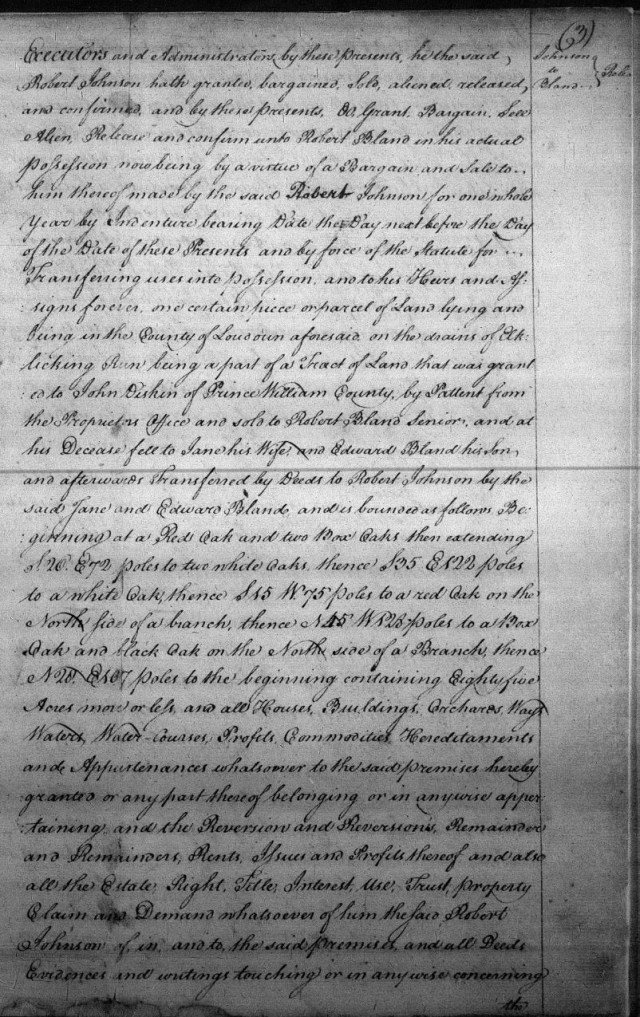 (3)
Johnson
to
Bland
Executors and Administrators by these presents, he the said
Robert Johnson hath granted, bargained, Sold, aliened, released,
and confirmed, and by these presents, do Grant, Bargain, Sell
Alien, Release and confirm unto Robert Bland in his actual
Possession now being by a virtue of a Bargain and Sale to
him thereof made by the said Robert Johnson for one whole
Year by Indenture bearing Date the Day next before the Day
of the Date of these Presents and by force of the Statute for
Transferring uses into Possession, and to his Heirs and As:
:signs forever, one certain piece or parcel of Land lying and
being in the County of Loudoun aforesaid, on the drains of Elk
licking Run being a part of a Tract of Land that was grant
:ed to John Diskin of Prince William County, by Pattent from
the Proprietors Office and sold to Robert Bland Senior, and at
his Decease fell to Jane his Wife, and Edward Bland his Son
and afterwards Transferred by Deeds to Robert Johnson by the
said Jane and Edward Bland, and is bounded as follows Be:
:ginning at a Red Oak and two Box Oaks then extending
S 20. E 72 poles to two white Oaks, thence S 35 E 122 poles
to a white Oak, thence S 15 W. 75 poles to a red Oak on the
North side of a branch, thence N 45 W 128 poles to a Box
Oak and black Oak on the North side of a Branch, thence
N 20. E 107 poles to the beginning containing Eighty five
Acres more or less, and all Houses, Buildings, Orchards, Ways
Waters, Water-courses, Profits, Commodities, Hereditaments
and Appurtenances whatsover to the said premises hereby
granted or any part thereof belonging or in anywise apper:
:taining and the Reversion and Reversions, Remainder
and Remainders, Rents, Issues and Profits thereof and also
all the Estate, Right, Title, Interest, Use, Trust, property
Claim and Demand whatsoever of him the said Robert
Johnson of, in, and to, the said premises, and all Deeds
Evidences and writings touching or in anywise concerning
the